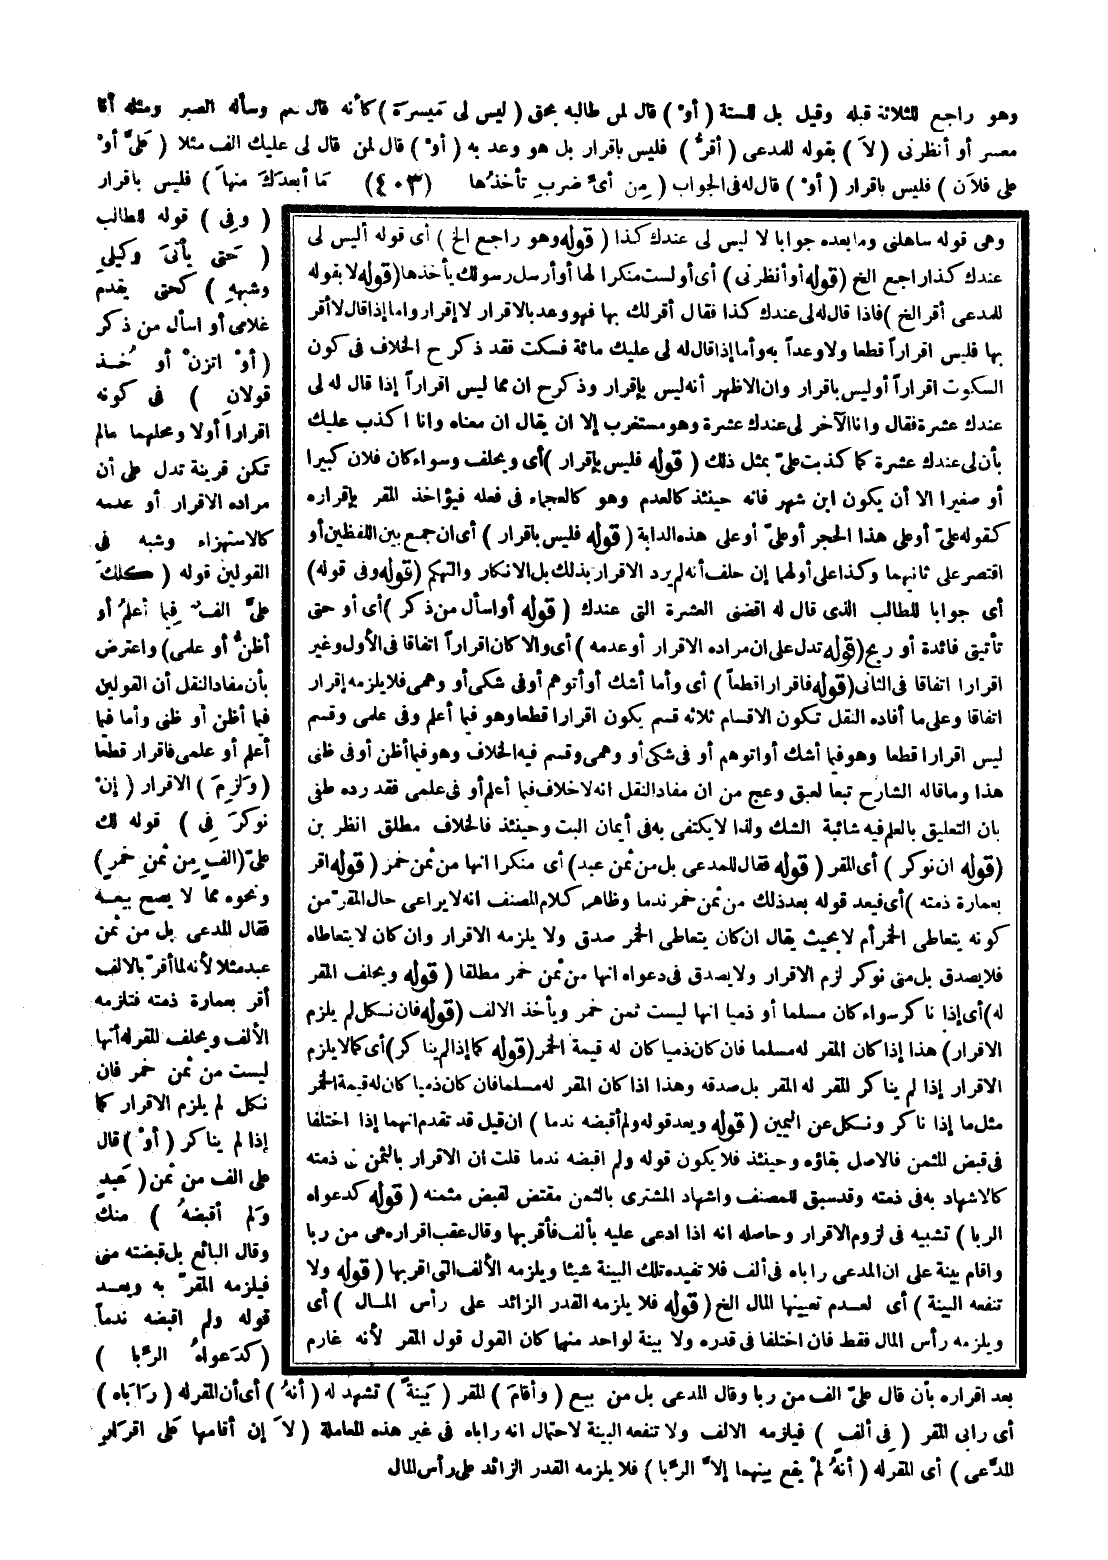 وهو راجع للثلاثة قبله وقيل بل للستة ( أوْ ) قال لمن طالبه بحق ( ليس لى مَيسرة ) كأنه قال نعم وسأله الصبر ومثله أنا
معسر أو أنظرنى ( لاَ ) بقوله للمدعى ( أقرُّ ) فليس باقرار بل هو وعد به ( أوْ ) قال لمن قال لى عليك الف مثلا ( عَلىَّ أوْ
على فلاَن ) فليس باقرار ( أوْ ) قال له فى الجواب ( مِن أىِّ ضربِ تأخذُها (٤٠٣) مَا أبعدَكَ منهاَ ) فليس باقرار
( وفِى ) قوله للطالب
( حَتى يأتىَ وكيلى
وشبههِ ) كحتى يقدم
غلامى أو اسأل من ذكر
( أوْ اتزنْ أو خُـذ
قولانِ ) فى كونه
اقراراً أولا ومحلهما مالم
تكن قرينة تدل على أن
مراده الاقرار أو عدمه
كالاستهزاء وشبه فى
القولين قوله ( كلكَ
علىَّ الفٌ فيما أعلمُ أو
أظنُّ أو علمى) واعترض
بأن مفاد النقل أن القولين
فيما أظن أو ظنى وأما فيما
أعلم أو علمى فاقرار قطعا
( وَلزِمَ ) الاقرار ( إنْ
نوكرَ فِى ) قوله لك
علىّ (الف مِن ثمنِ خمرٍ )
ونحوه مما لا يصح بيعـه
فقال المدعى بل من ثمن
عبد مثلا لأنه لما أقرّ بالالف
أقر بعمارة ذمته فتلزمه
الألف ويحلف المقر له أنها
ليست من ثمن خمر فان
نكل لم يلزم الاقرار كما
إذا لم يناكر ( أوْ ) قال
على الف من ثمن ( عَبدٍ
وَلم أقبضهُ ) منك
وقال البائع بل قبضته منى
فيلزمه المقرّ به ويعد
قوله ولم اقبضه ندماً
( كدَعواهُ الرِّبا )
وهى قوله ساهلنى وما بعده جوابا لا ليس لى عندك كذا ( قوله وهو راجع الخ ) أى قوله أليس لى
عندك كذا راجع الخ (قوله أو أنظرنى ) أى أو لست منكرا لها أو أرسل رسولك يأخذها (قوله لا بقوله
للمدعى أقر الخ ) فاذا قال له لى عندك كذا فقال أقر لك بها فهو وعد بالاقرار لا إقرار واما إذا قال لا أقر
بها فليس اقراراً قطعا ولا وعداً به وأما إذا قال له لى عليك مائة فسكت فقد ذكر ح الخلاف فى كون
السكوت اقراراً أوليس باقرار وان الاظهر أنه ليس بإقرار وذكر ح ان مما ليس اقراراً إذا قال له لى
عندك عشرة فقال وانا الآخر لى عندك عشرة وهو مستغرب إلا ان يقال ان معناه وانا اكذب عليك
بأن لى عندك عشرة كما كذبت علىّ بمثل ذلك ( قوله فليس بإقرار ) أى ويحلف وسواء كان فلان كبيرا
أو صغيرا الا أن يكون ابن شهر فانه حينئذ كالعدم وهو كالعجماء فى فعله فيؤاخذ المقر بإقراره
كقوله علىّ أو على هذا الحجر أو علىّ أو على هذه الدابة ( قوله فليس باقرار ) أى ان جمع بين اللفظين أو
اقتصر على ثانيهما وكذا على أولهما إن حلف أنه لم يرد الاقرار بذلك بل الانكار والتهكم (قوله وفى قوله)
أى جوابا للطالب الذى قال له اقضنى العشرة التى عندك ( قوله أو اسأل من ذكر ) أى أو حتى
تأتينى فائدة أو ربح (قوله تدل على ان مراده الاقرار أو عدمه ) أى والا كان اقراراً اتفاقا فى الأول وغير
اقرارا اتفاقا فى الثانى (قوله فاقرار اقطعاً ) أى وأما أشك أو أتوهم أو فى شكى أو وهمى فلا يلزمه إقرار
اتفاقا وعلى ما أفاده النقل تكون الاقسام ثلاثه قسم يكون اقرارا قطعا وهو فيما أعلم وفى علمى وقسم
ليس اقرارا قطعا وهو فيما أشك أو اتوهم أو فى شكى أو وهمى وقسم فيه الخلاف وهو فيما أظن أو فى ظنى
هذا وما قاله الشارح تبعا لعبق وعج من ان مفاد النقل انه لا خلاف فيما أعلم أو فى علمى فقد رده طفى
بان التعليق بالعلم فيه شائبة الشك ولذا لا يكتفى به فى أيمان البت وحينئذ فالخلاف مطلق انظر بن
(قوله ان نوكر ) أى المقر ( قوله فقال للمدعى بل من ثمن عبد) أى منكرا انها من ثمن خمر ( قوله اقر
بعمارة ذمته ) أى فيعد قوله بعد ذلك من ثمن خمر ندما وظاهر كلام المصنف انه لا يراعى حال المقرّ من
كونه يتعاطى الخمر أم لا بحيث يقال ان كان يتعاطى الخمر صدق ولا يلزمه الاقرار وان كان لا يتعاطاه
فلا يصدق بل متى نوكر لزم الاقرار ولا يصدق فى دعواه انها من ثمن خمر مطلقا ( قوله ويحلف المقر
له) أى إذا ناكر سواء كان مسلما أو ذميا انها ليست ثمن خمر ويأخذ الالف (قوله فان نكل لم يلزم
الاقرار ) هذا إذا كان المقر له مسلما فان كان ذميا كان له قيمة الخمر (قوله كما إذا لم يناكر ) أى كما لا يلزم
الاقرار إذا لم يناكر المقر له المقر بل صدقه وهذا اذا كان المقر له مسلما فان كان ذميا كان له قيمة الخمر
مثل ما إذا ناكر ونكل عن اليمين ( قوله ويعد قوله ولم أقبضه ندما ) ان قيل قد تقدم انهما إذا اختلفا
فى قبض المثمن فالاصل بقاؤه وحينئذ فلا يكون قوله ولم اقبضه ندما قلت ان الاقرار بالثمن فى ذمته
كالاشهاد به فى ذمته وقد سبق للمصنف واشهاد المشترى بالثمن مقتض لقبض مثمنه ( قوله كدعواه
الربا ) تشبيه فى لزوم الاقرار وحاصله انه اذا ادعى عليه بألف فأقر بها وقال عقب اقراره هى من ربا
واقام بينة على ان المدعى راباه فى ألف فلا تفيده تلك البينة شيئا ويلزمه الألف التى اقر بها ( قوله ولا
تنفعه البينة ) أى لعـدم تعيينها المال الخ ( قوله فلا يلزمه القدر الزائد على رأس المـال ) أى
ويلزمه رأس المال فقط فان اختلفا فى قدره ولا بينة لواحد منهما كان القول قول المقر لأنه غارم
بعد اقراره بأن قال علىّ الف من ربا وقال المدعى بل من بيع ( وأقامَ ) المقر ( بَينةً ) تشهد له ( أنهُ ) أى أن المقر له ( رَاباَه )
أى رابى المقر ( فِى ألفٍ ) فيلزمه الالف ولا تنفعه البينة لاحتمال انه راباه فى غير هذه المعاملة ( لاَ إن أقامها عَلى اقرَارِ
المدَّعى ) أى المقر له ( أنهُ لمْ يقع بينهما إلاَّ الرِّبا ) فلا يلزمه القدر الزائد على رأس المال